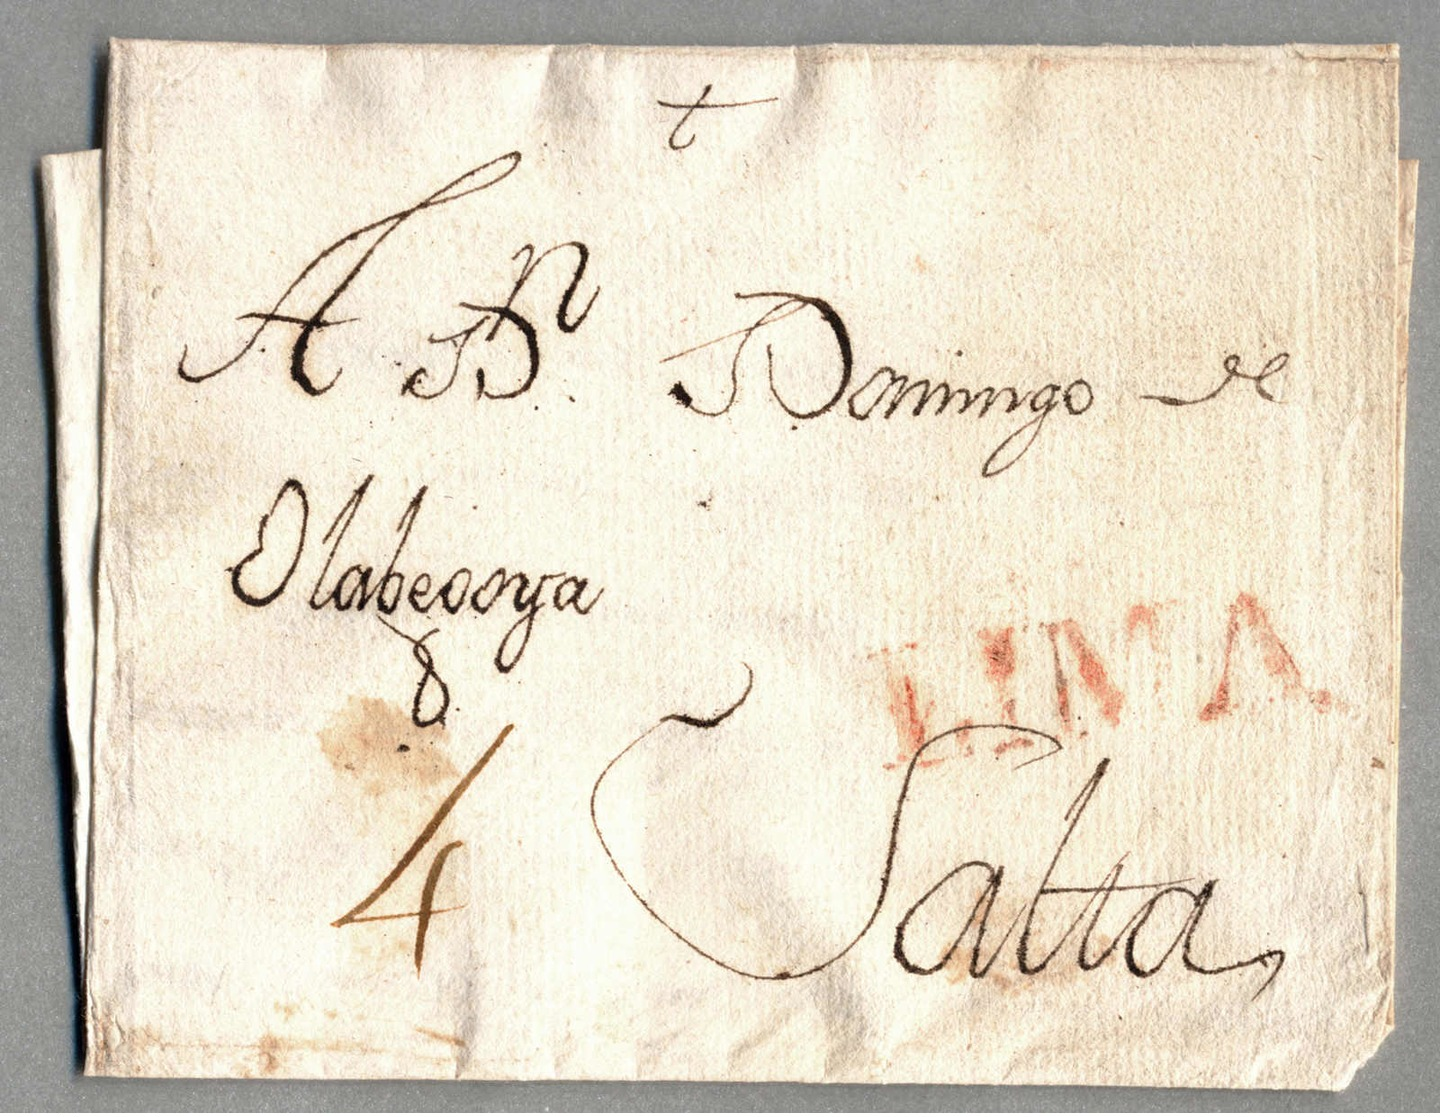 †
A Dn Domingo de
Olabeooya
8
LIMA
4
Salta,